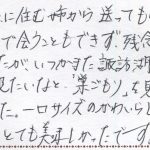 に住む姉から送っても
で会うこともできず、残念
たが、いつかまた諏訪湖
見たいなと、"巣ごもり"を
た。一口サイズのかわいらし
とても美味しかったです。